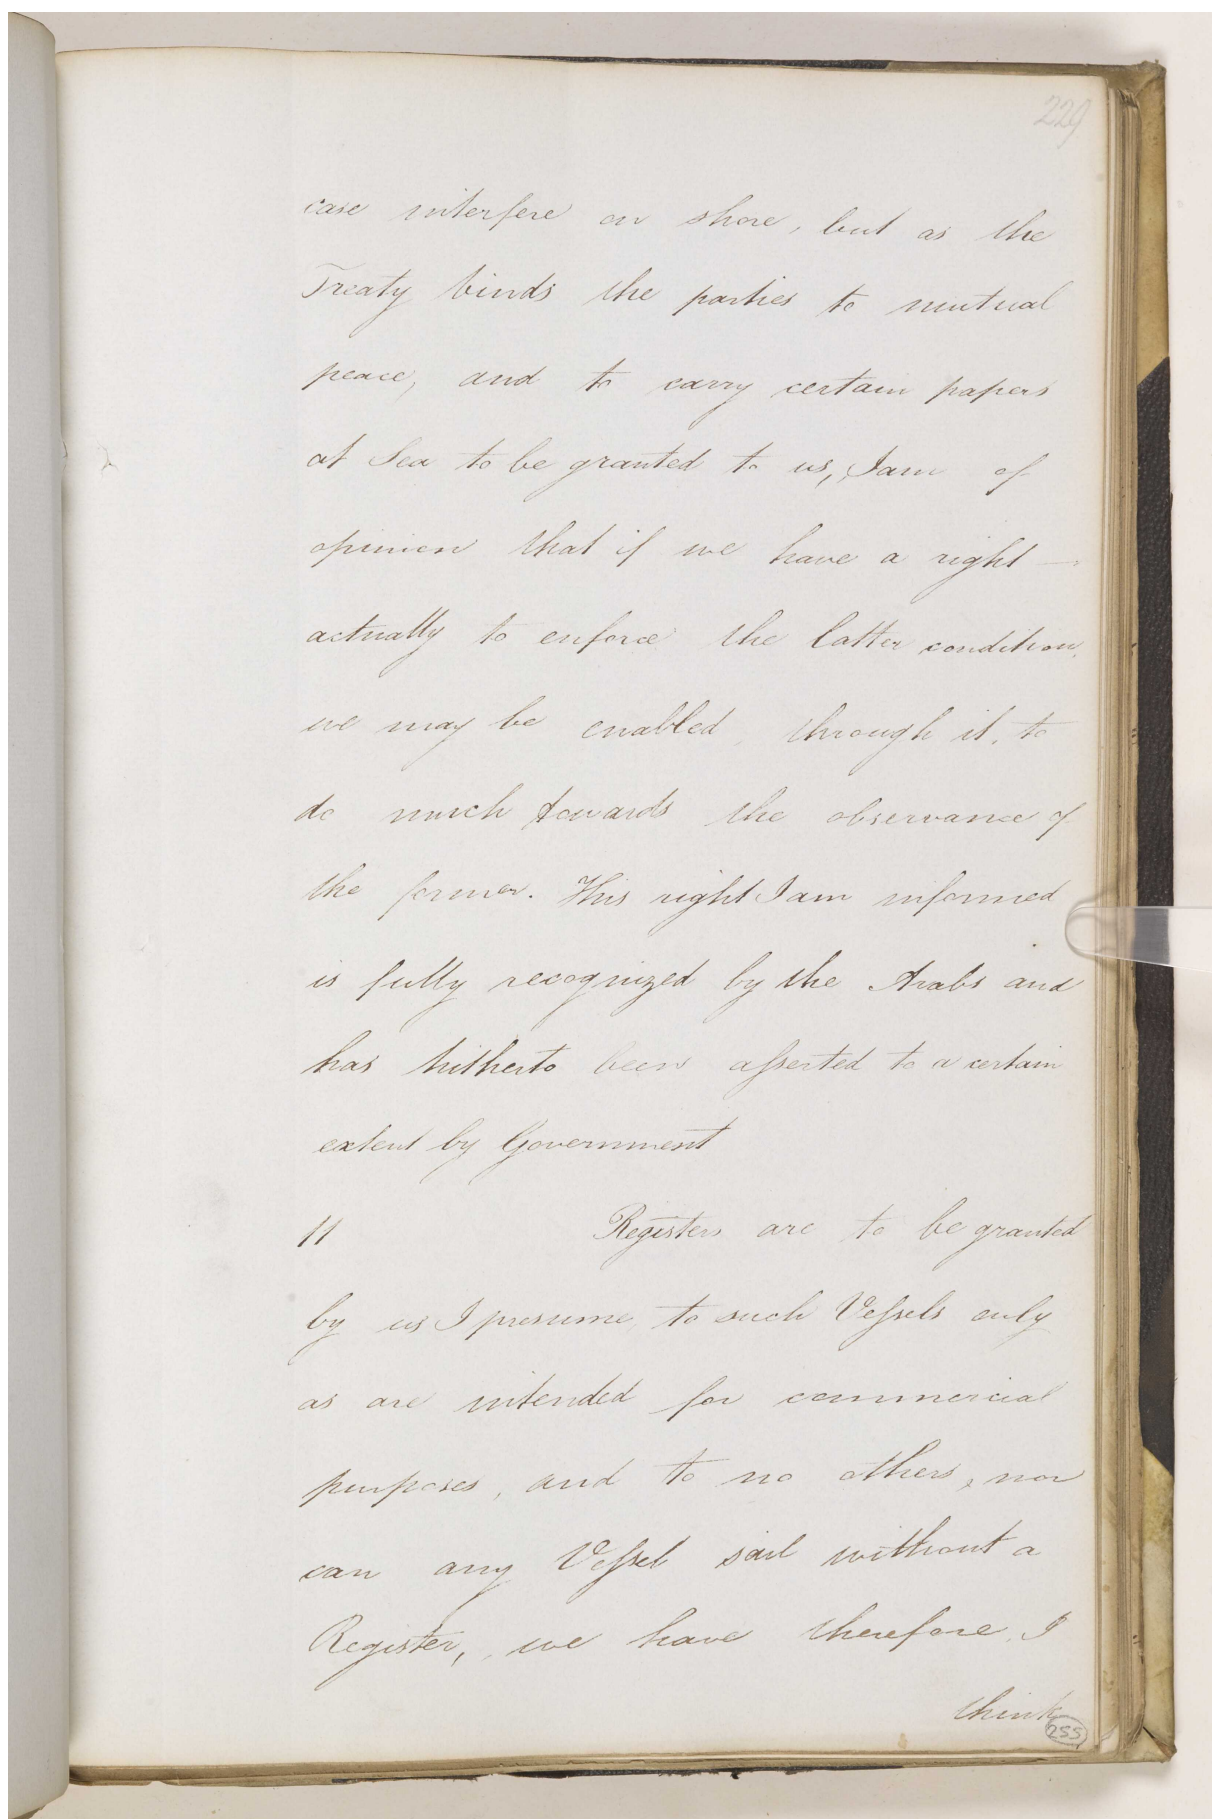 229
case interfere on shore, but as the
Treaty binds the parties to mutual
peace, and to carry certain papers
at Sea to be granted to us, I am of
opinion that if we have a right —
actually to enforce the latter condition,
we may be enabled, through it, to
do much towards the observance of
the former. This right I am informed
is fully recognized by the Arabs and
has hitherto been asserted to a certain
extent by Government
11 Registers are to be granted
by us I presume, to such Vessels only
as are intended for commercial
purposes, and to no others, nor
can any Vessel sail without a
Register, we have therefore, I
think
255